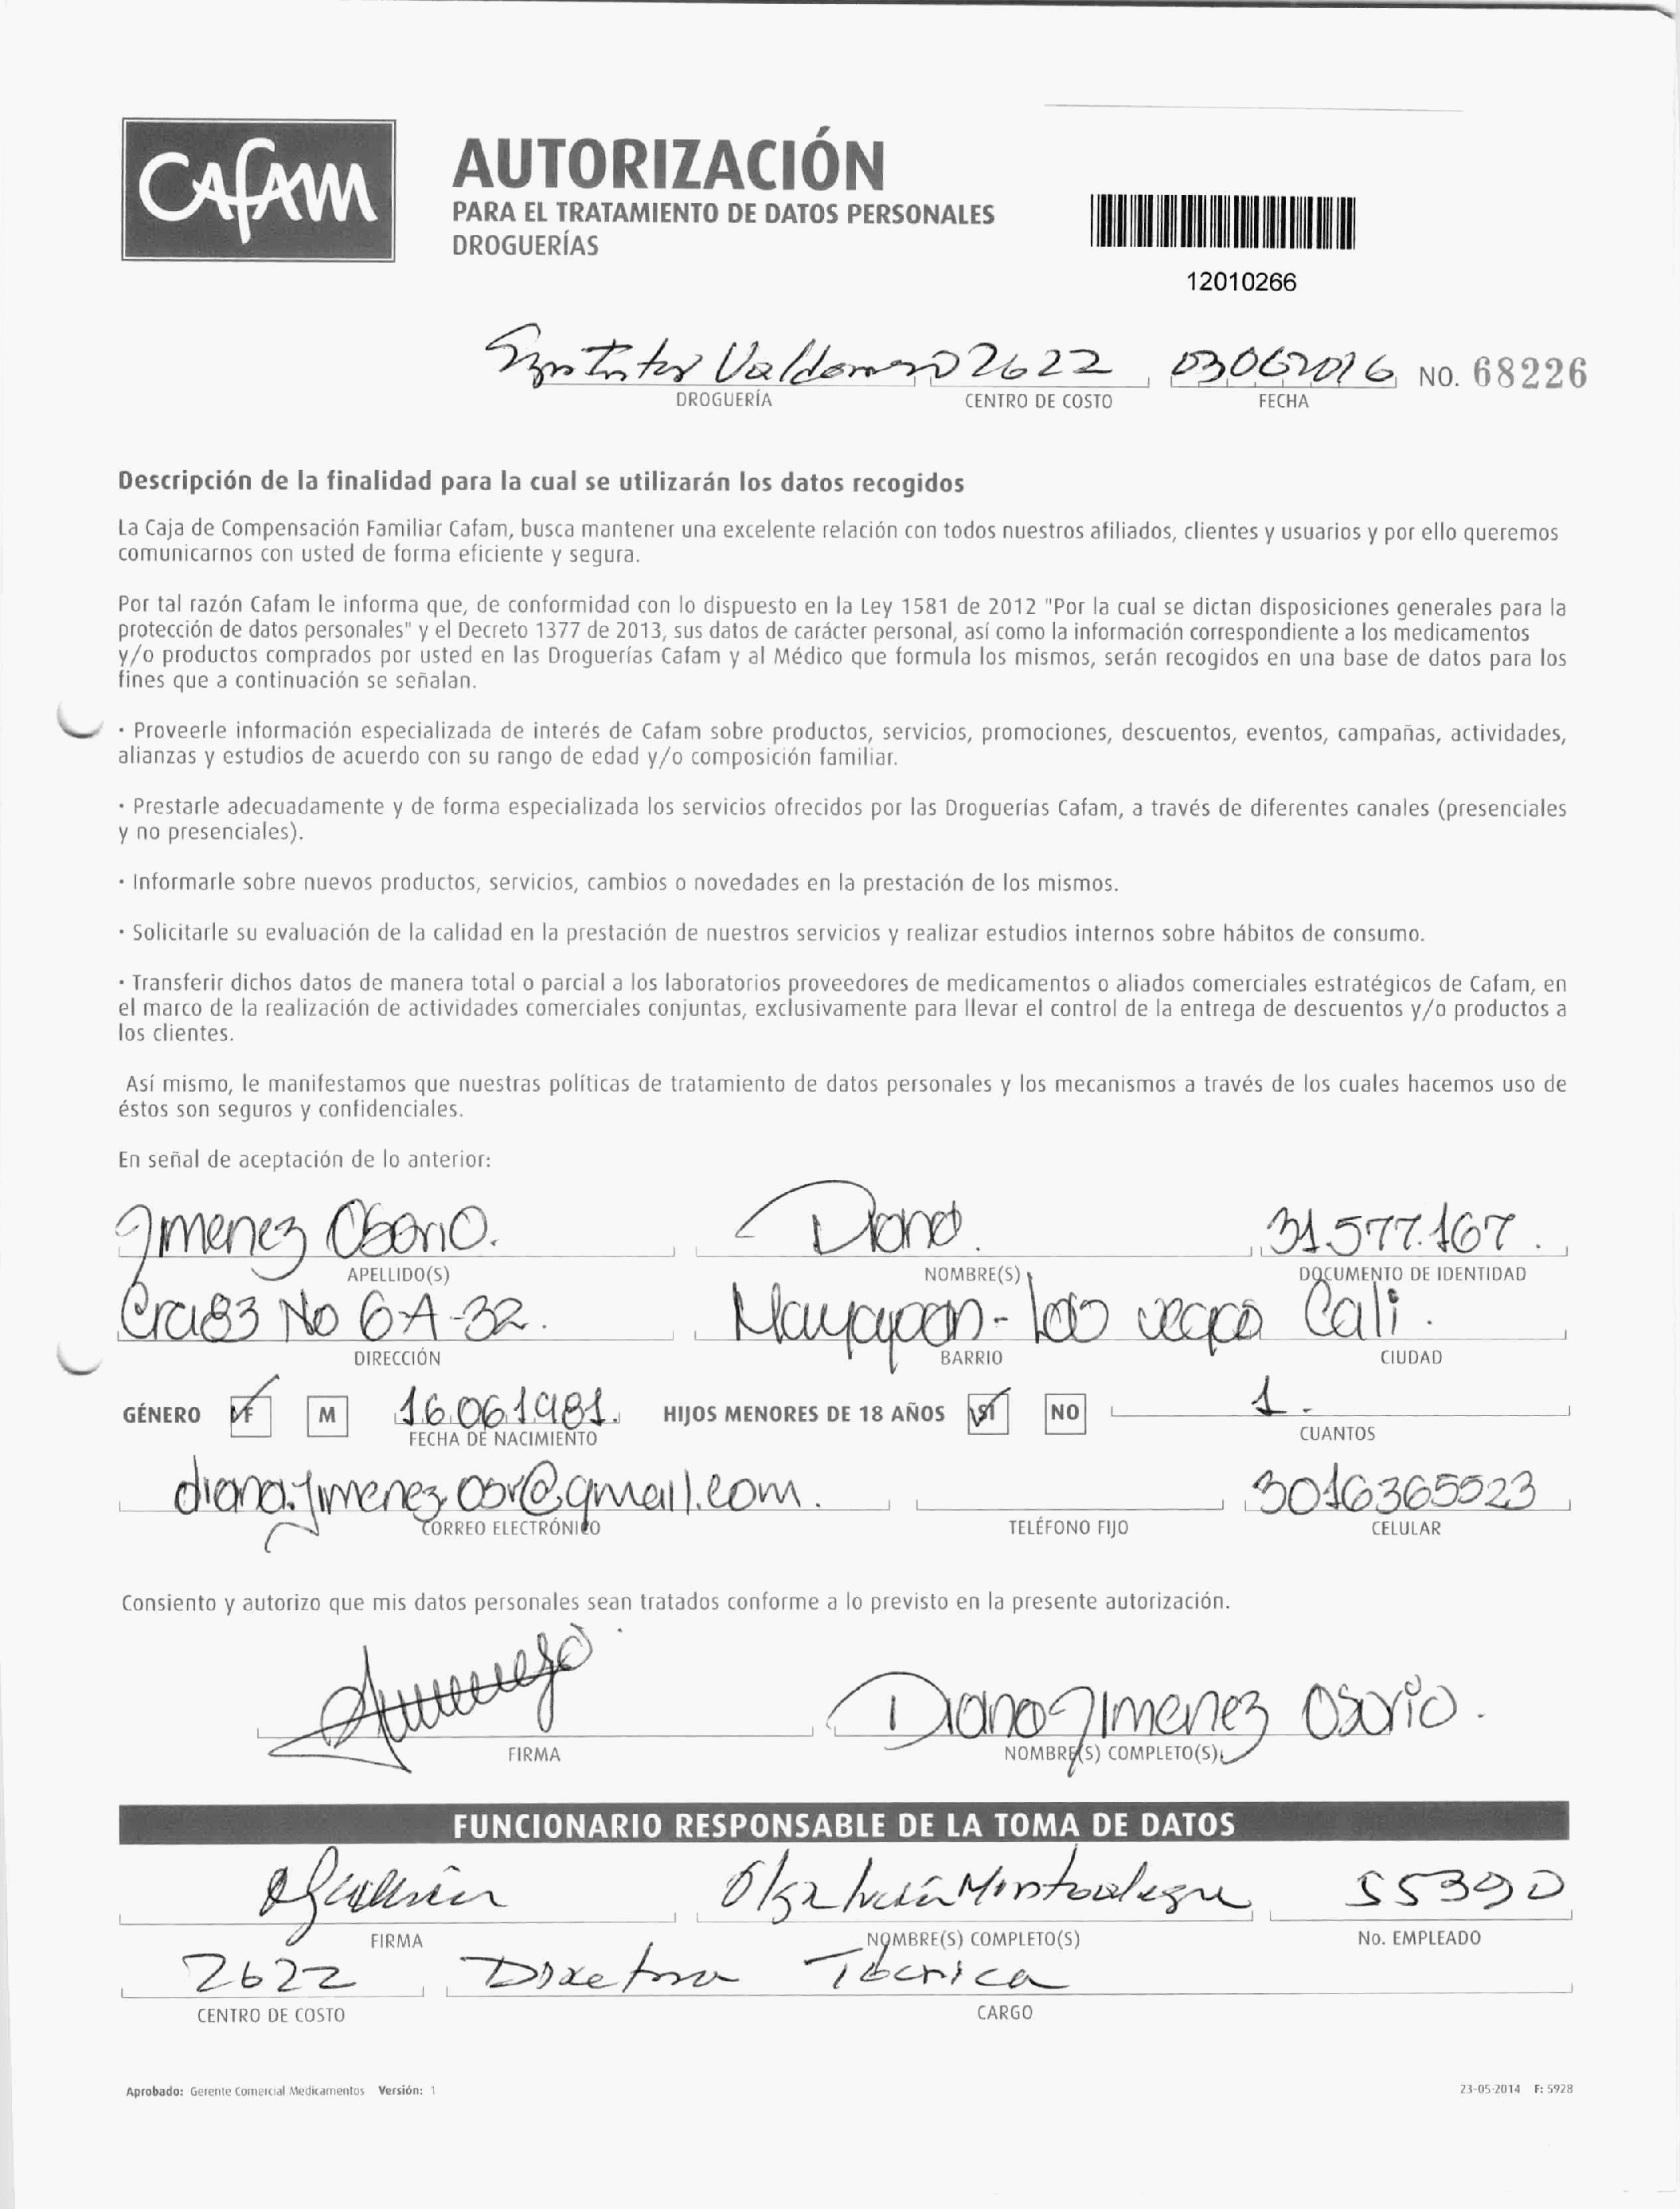 CAFAM
AUTORIZACIÓN
PARA EL TRATAMIENTO DE DATOS PERSONALES
DROGUERÍAS
12010266
2622 03062016 NO. 68226
DROGUERÍA CENTRO DE COSTO FECHA
Descripción de la finalidad para la cual se utilizarán los datos recogidos
La Caja de Compensación Familiar Cafam, busca mantener una excelente relación con todos nuestros afiliados, clientes y usuarios y por ello queremos
comunicarnos con usted de forma eficiente y segura.
Por tal razón Cafam le informa que, de conformidad con lo dispuesto en la Ley 1581 de 2012 "Por la cual se dictan disposiciones generales para la
protección de datos personales" y el Decreto 1377 de 2013, sus datos de carácter personal, así como la información correspondiente a los medicamentos
y/o productos comprados por usted en las Droguerías Cafam y al Médico que formula los mismos, serán recogidos en una base de datos para los
fines que a continuación se señalan.
· Proveerle información especializada de interés de Cafam sobre productos, servicios, promociones, descuentos, eventos, campañas, actividades,
alianzas y estudios de acuerdo con su rango de edad y/o composición familiar.
· Prestarle adecuadamente y de forma especializada los servicios ofrecidos por las Droguerías Cafam, a través de diferentes canales (presenciales
y no presenciales).
· Informarle sobre nuevos productos, servicios, cambios o novedades en la prestación de los mismos.
· Solicitarle su evaluación de la calidad en la prestación de nuestros servicios y realizar estudios internos sobre hábitos de consumo.
· Transferir dichos datos de manera total o parcial a los laboratorios proveedores de medicamentos o aliados comerciales estratégicos de Cafam, en
el marco de la realización de actividades comerciales conjuntas, exclusivamente para llevar el control de la entrega de descuentos y/o productos a
los clientes.
Así mismo, le manifestamos que nuestras políticas de tratamiento de datos personales y los mecanismos a través de los cuales hacemos uso de
éstos son seguros y confidenciales.
En señal de aceptación de lo anterior:
Jimenez Osorio. Diana. 31.577.167.
APELLIDO(S) NOMBRE(S) DOCUMENTO DE IDENTIDAD
Cra 83 No 6A-32. Mayapan - las vegas Cali.
DIRECCIÓN BARRIO CIUDAD
GÉNERO F M 16.06.1981. HIJOS MENORES DE 18 AÑOS SI NO 1.
FECHA DE NACIMIENTO CUANTOS
diana.jimenez.osr@gmail.com. 3016365523
CORREO ELECTRÓNICO TELÉFONO FIJO CELULAR
Consiento y autorizo que mis datos personales sean tratados conforme a lo previsto en la presente autorización.
Diana Jimenez Osorio.
FIRMA NOMBRE(S) COMPLETO(S)
FUNCIONARIO RESPONSABLE DE LA TOMA DE DATOS
Olga Lucía Montealegre 55390
FIRMA NOMBRE(S) COMPLETO(S) No. EMPLEADO
2622 Directora Técnica
CENTRO DE COSTO CARGO
Aprobado: Gerente Comercial Medicamentos Versión: 1 23-05-2014 F: 5928